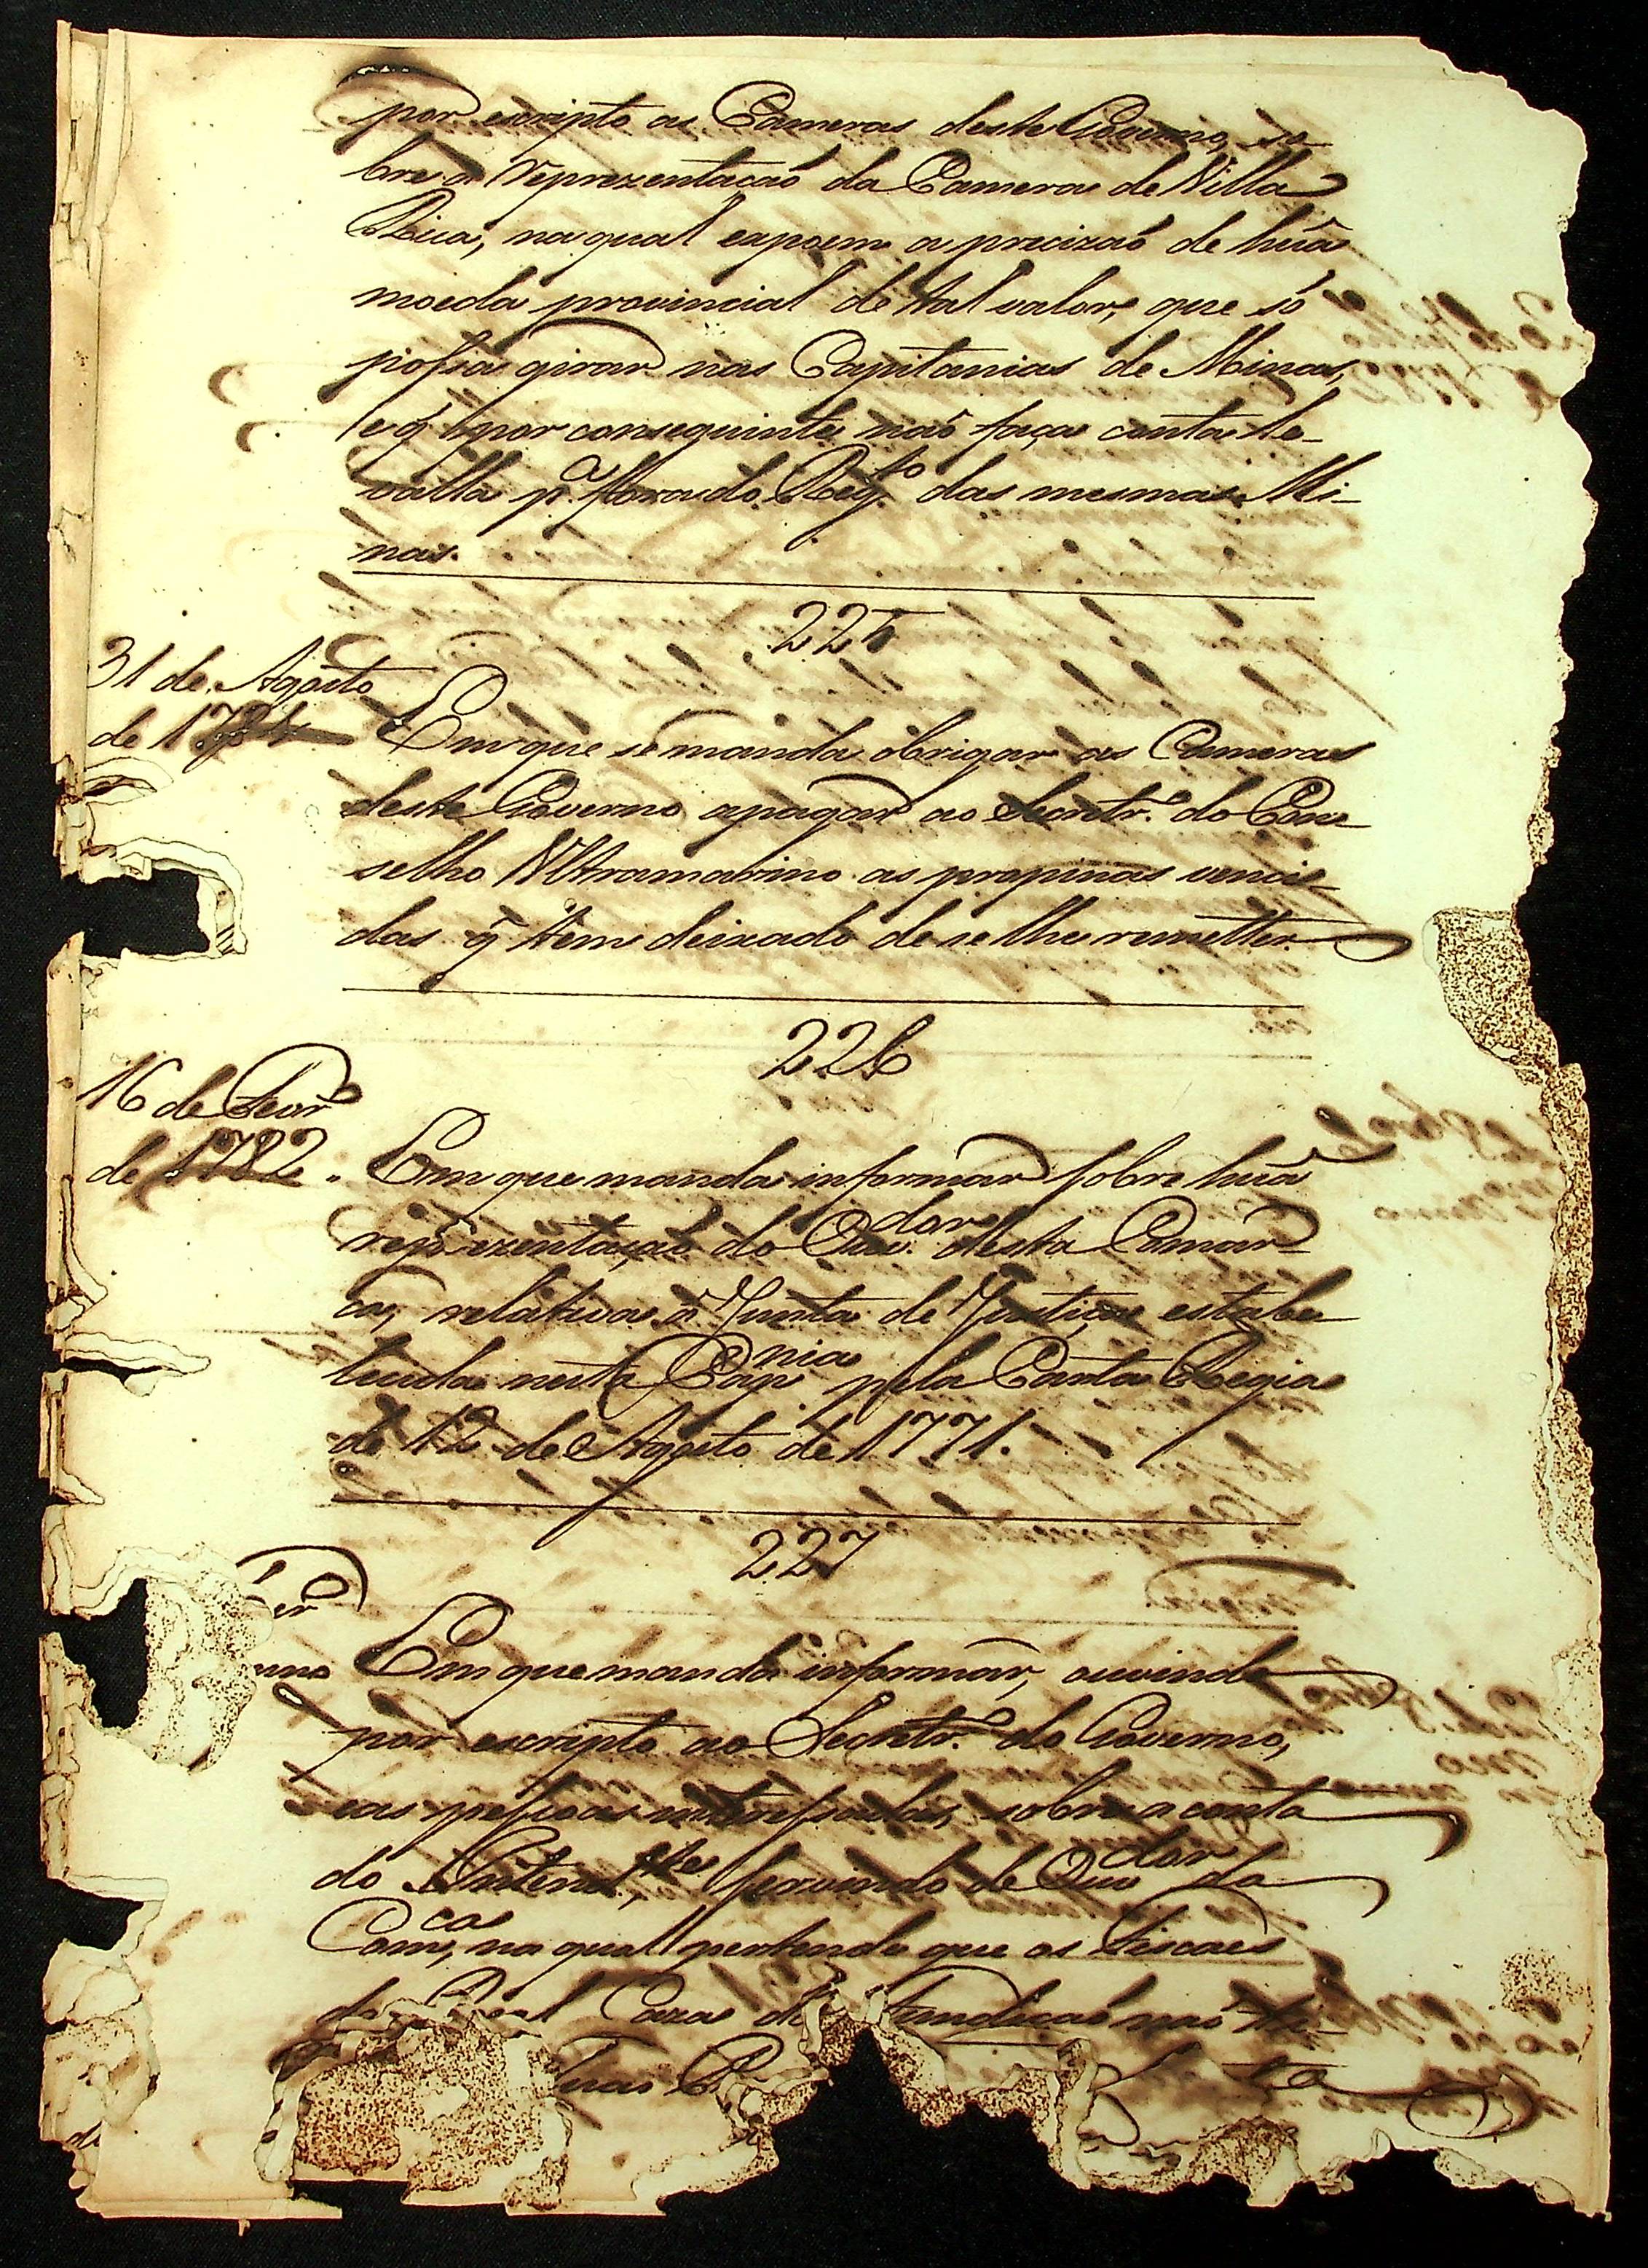 por escripto as Cameras deste Governo, so
bre a reprezentaçaõ da Camera de Villa
Rica, na qual expoem a precizaõ de huã
moeda provincial de tal valor, que só
possa girar nas Capitanias de Minas,
e q̃ por conseguinte naõ faça conta le-
valla p.ª fora do Reg.to das mesmas Mi-
nas.
225
31 de Agosto
de 1781
Em que se manda obrigar as Cameras
deste Governo a pagar ao Secretr.º do Con-
selho Ultramarino as propinas venci-
das q̃ tem deixado de se lhe remetter
226
16 de Fevr.º
de 1782.
Em que manda informar sobre huã
reprezentaçaõ do Ouv.dor desta Comar-
ca, relativa á Junta de Justiça estabe
lecida nesta Cap.nia pela Carta Regia
de 12 de Agosto de 1771.
227
Em que manda informar, ouvindo
por escripto ao Secretr.º do Governo,
e as pessoas interessadas, sobre a conta
do Intend.te servindo de Ouv.dor da
Com.ca, na qual pertende que os Fiscaes
da Real Caza de Fundicaõ naõ ti-